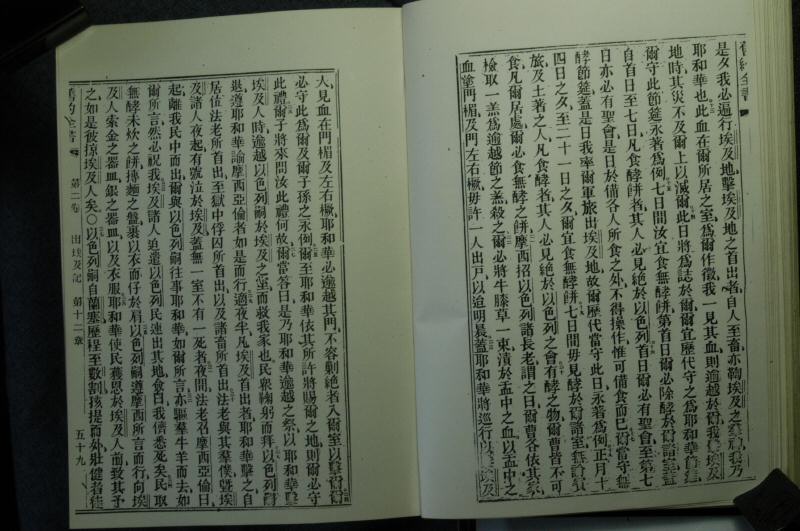 舊約全書
是夕我必遍行埃及地擊埃及地之首出者自人至畜亦鞫埃及之羣神我乃
耶和華也此血在爾所居之室爲爾作徵我一見其血則逾越於爾我擊埃及
地時其災不及爾上以滅爾此日將爲誌於爾爾宜歷代守之爲耶和華節筵
爾守此節筵永著爲例七日間汝宜食無酵餅第首日爾必除酵於爾諸室蓋
自首日至七日凡食酵餅者其人必見絕於以色列首日爾必有聖會至第七
日亦必有聖會是日於備各人所食之外不得操作惟可備食而已爾當守無
酵節筵蓋是日我率爾軍旅出埃及地故爾歷代當守此日永著爲例正月十
四日之夕至二十一日之夕爾宜食無酵餅七日間毋見酵於爾諸室蓋
旅及土著之人凡食酵者其人必見絕於以色列之會有酵之物爾曹皆不可
食凡爾居處爾必食無酵之餅摩西招以色列諸長老謂之曰爾曹各依其家
檢取一羔爲逾越節之羔殺之爾必將牛膝草一束漬於盂中之血以盂中之
血塗門楣及門左右橛毋許一人出戶以迨明晨蓋耶和華將巡行以擊埃及
人見血在門楣及左右橛耶和華必逾越其門不容剿絕者入爾室以擊爾
必守此爲爾及爾子孫之永例爾至耶和華依其所許將賜爾之地則爾必守
此禮爾子將來問汝此禮何故爾當答曰是乃耶和華逾越之祭以耶和華擊
埃及人時逾越以色列嗣於埃及之室而救我家也民衆鞠躬而拜以色列嗣
退遵耶和華諭摩西亞倫者如是而行適夜半凡埃及首出者耶和華擊之自
居位法老所首出至獄中俘囚所首出以及諸畜所首出法老與其羣僕曁埃
及諸人夜起有號泣於埃及蓋無一室不有一死者夜間法老召摩西亞倫曰
起離我民中而出爾與以色列嗣往事耶和華如爾所言亦驅羣牛羊而去如
爾所言然必祝我埃及諸人迫遣以色列民速出其地僉曰我儕悉死矣民取
無酵未炊之餅摶麵之盤裹以衣而仔於肩以色列嗣遵摩西所言而行向埃
及人索金之器皿銀之器皿以及衣服耶和華使民獲恩於埃及人前致其予
之如是彼掠埃及人矣〇以色列嗣自蘭塞歷程至數割孩提而外壯健者徒
舊約全書 第二卷 出埃及記 第十二章 五十九